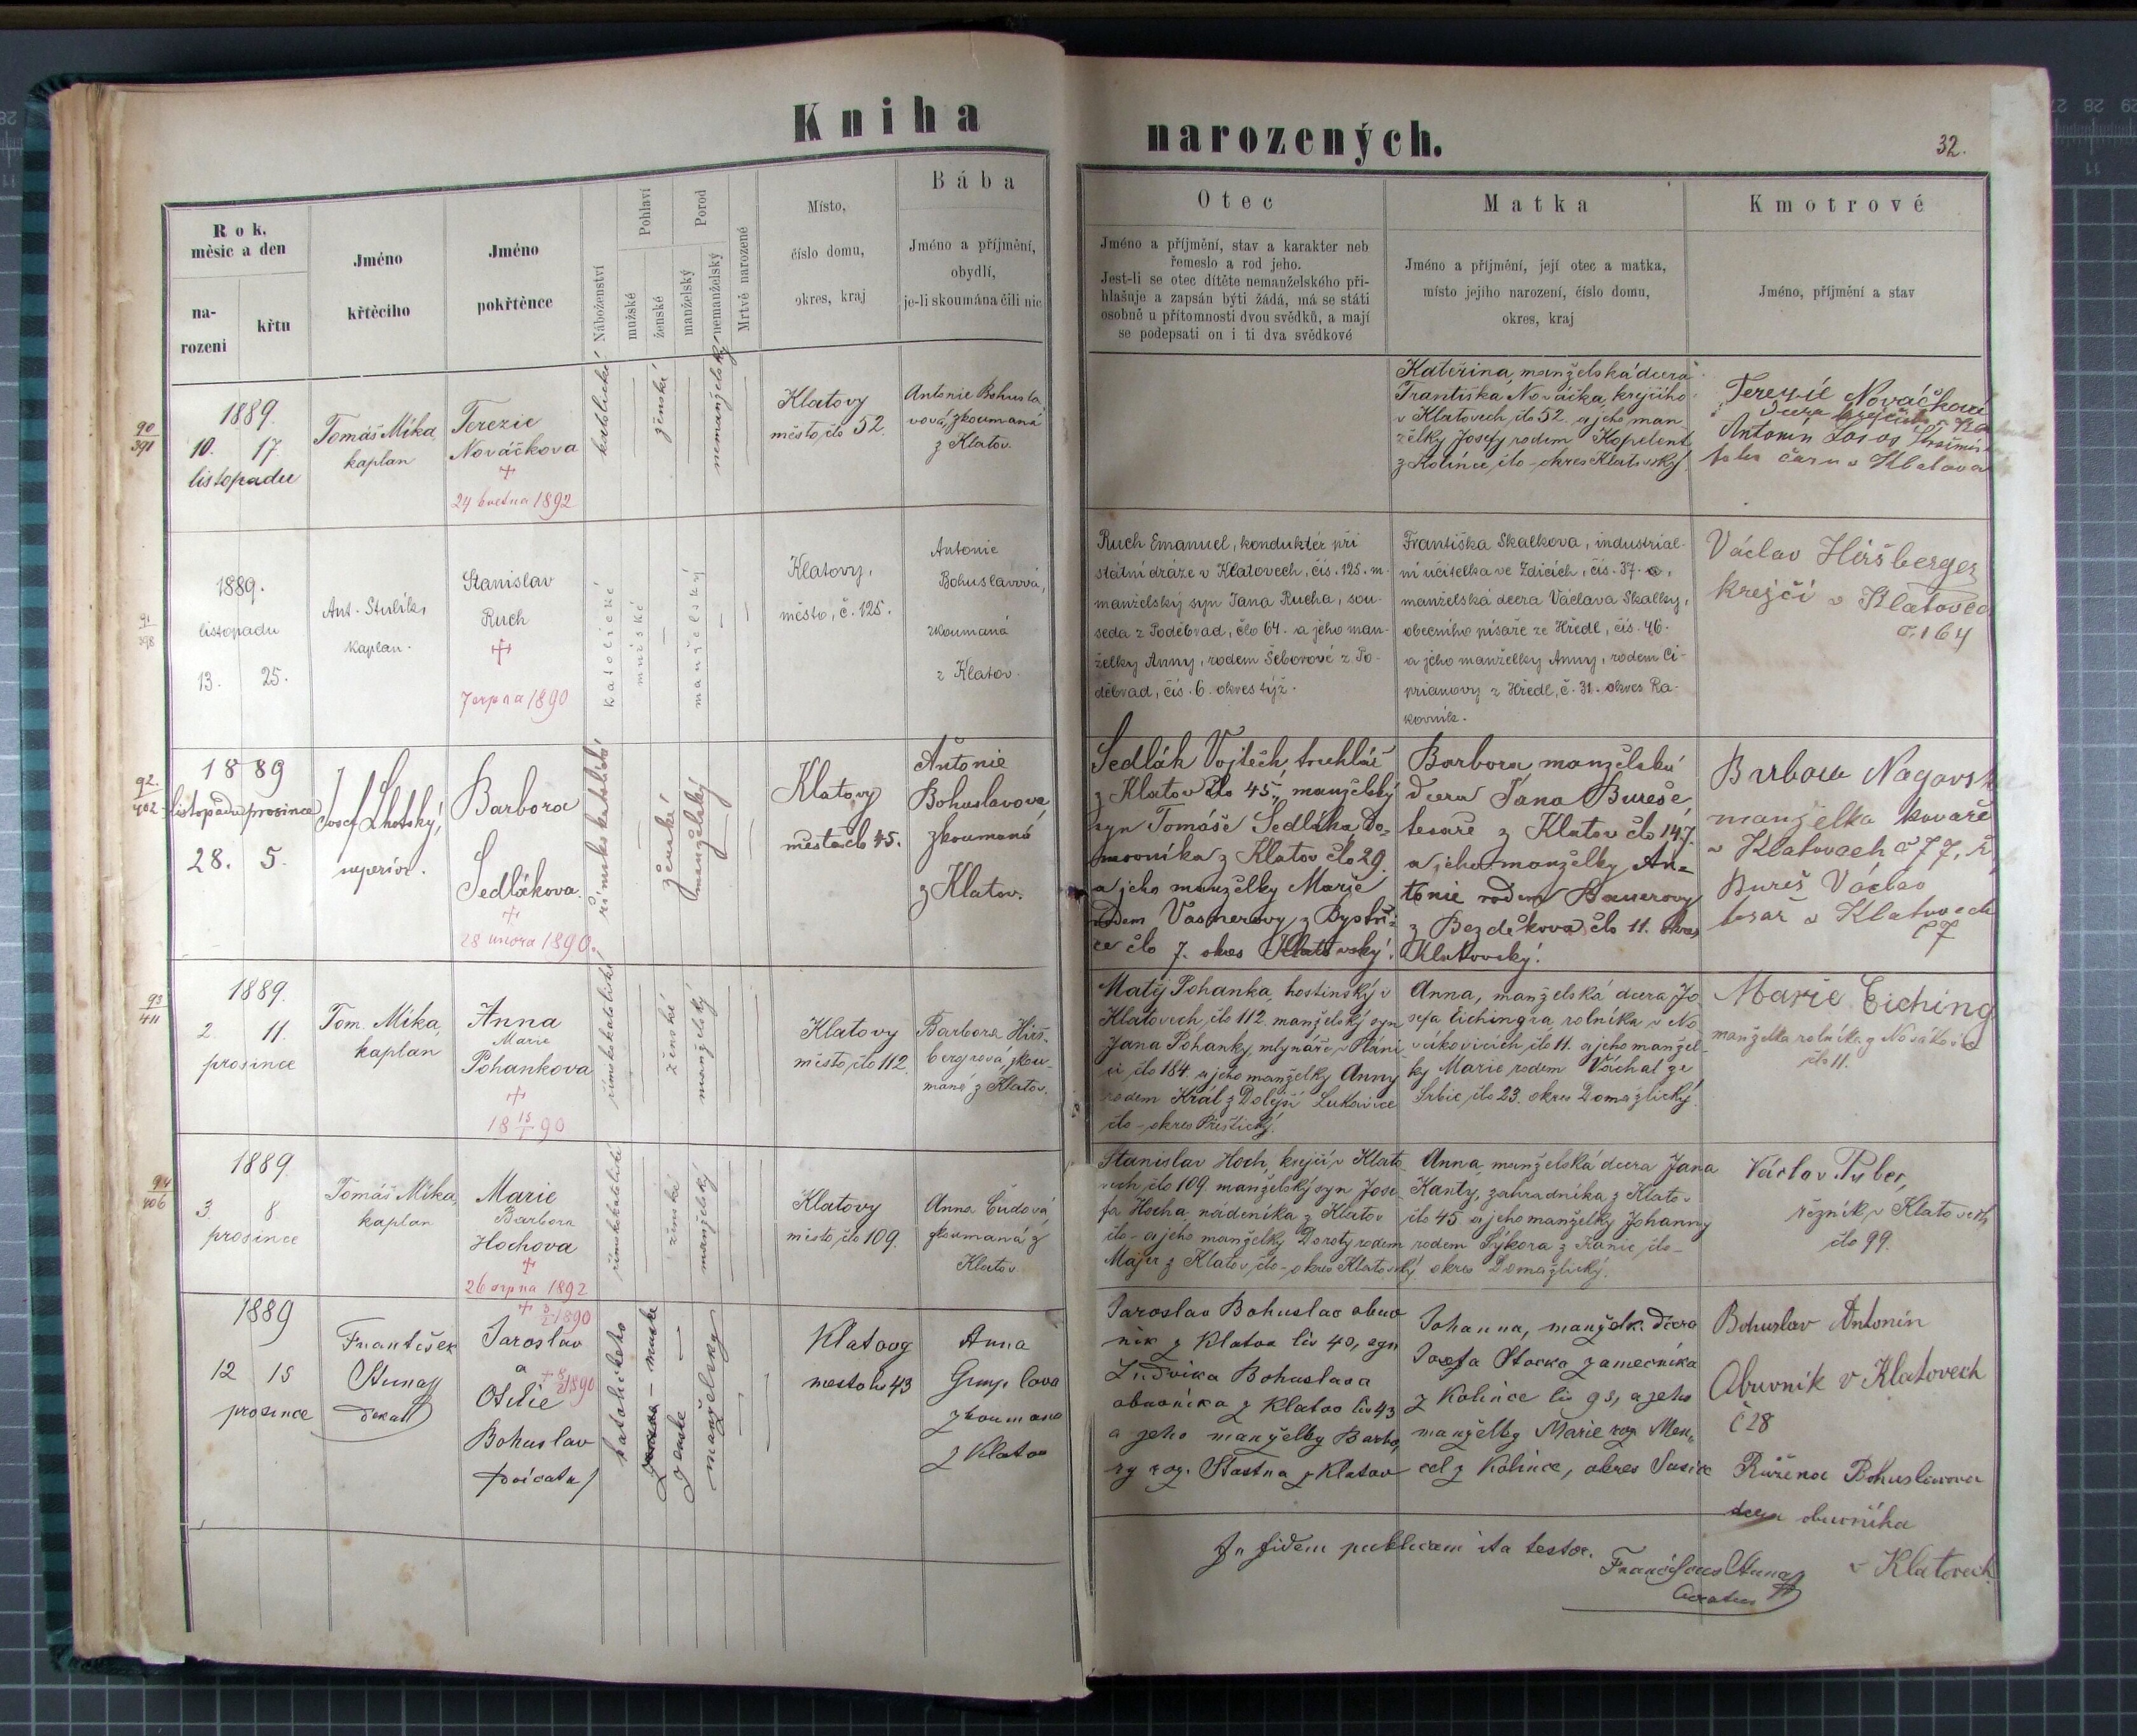 Kniha narozených.
32.
Rok, měsíc a den
narození
křtu
Jméno křtěcího
Jméno pokřtěnce
Náboženství
Pohlaví
mužské
ženské
Porod
manželský
nemanželský
Mrtvě narozené
Místo,
číslo domu,
okres, kraj
Bába
Jméno a příjmění,
obydlí,
je-li skoumána čili nic
Otec
Jméno a příjmění, stav a karakter neb
řemeslo a rod jeho.
Jest-li se otec dítěte nemanželského při-
hlašuje a zapsán býti žádá, má se státi
osobně u přítomnosti dvou svědků, a mají
se podepsati on i ti dva svědkové
Matka
Jméno a příjmění, její otec a matka,
místo jejího narození, číslo domu,
okres, kraj
Kmotrové
Jméno, příjmění a stav
90
391
1889.
10. 17.
listopadu
Tomáš Míka
kaplan
Terezie
Nováčkova
+
24 května 1892
katolické
ženské
nemanželský
Klatovy
město člo 52.
Antonie Bohusla
vová, zkoumaná
z Klatov.
Kateřina, manželská dcera
Františka Nováčka, krejčího
v Klatovech, člo 52. a jeho man
želky Josefy rodem Kopelent
z Kolínce člo - okres Klatovský
Terezie Nováčková
dcera krejčího
Antonín
91
398
1889.
listopadu
13. 25.
Ant. Stulík,
kaplan.
Stanislav
Ruch
+
7 srpna 1890
katolické
mužské
manželský
Klatovy,
město, č. 125.
Antonie
Bohuslavová,
zkoumaná
z Klatov.
Ruch Emanuel, konduktér při
státní dráze v Klatovech, čís. 125. m.
manželský syn Jana Rucha, sou-
seda z Poděbrad, člo 64. a jeho man-
želky Anny, rodem Šeborové z Po-
děbrad, čís. 6. okres týž.
Františka Skalkova, industrial-
ní učitelka ve Zdicích, čís. 37.
manželská dcera Václava Skalky,
obecního písaře ze Hředl, čís. 46.
a jeho manželky Anny, rodem Ci-
prianovy z Hředl, č. 31. okres Ra-
kovník.
Václav Hiršberger
krejčí v Klatovech
č. 164
92.
402
1889
listopadu prosince
28. 5.
Josef Lhotský,
superior.
Barbora
Sedlákova.
+
28 února 1890.
římsko katolické
ženské
manželský
Klatovy
město člo 45.
Antonie
Bohuslavová
zkoumaná
z Klatov.
Sedlák Vojtěch, truhlář
z Klatov člo 45, manželský
syn Tomáše Sedláka, do-
movníka z Klatov člo 29.
a jeho manželky Marie
rodem Vasnerovy z Bystři-
ce člo 7. okres Klatovský.
Barbora manželská
dcera Jana Bureše,
tesaře z Klatov člo 147.
a jeho manželky An-
tonie rodem Bauerovy
z Bezděkova člo 11. okres
Klatovský.
manželka kovaře
v Klatovech č 77.
Bureš Václav
tesař v Klatovech
93
411
1889.
2. 11.
prosince
Tom. Míka,
kaplan
Anna
Marie
Pohankova
+
18 15/1 90
římskokatolické
ženské
manželský
Klatovy
město, člo 112.
Barbora Hirš-
bergrová, zkou-
maná z Klatov.
Matěj Pohanka, hostinský v
Klatovech, člo 112. manželský syn
Jana Pohanky, mlynáře v Pláni-
ci člo 184. a jeho manželky Anny
rodem Král z Dolejší Lukavice
člo - okres Přeštický.
Anna, manželská dcera Jo
sefa Eichingra, rolníka v No
vákovicích, člo 11. a jeho manžel-
ky Marie rodem Váchal ze
Srbic, člo 23. okres Domažlický.
Marie Eiching
manželka rolníka z Novákovic
člo 11.
94
406
1889.
3. 8
prosince
Tomáš Míka,
kaplan
Marie
Barbora
Hochova
+
26 srpna 1892
římskokatolické
ženské
manželský
Klatovy
město, člo 109.
Anna Čudová
zkoumaná z
Klatov.
Stanislav Hoch, krejčí v Klato-
vech člo 109. manželský syn Jose
fa Hocha, nádeníka z Klatov
člo - a jeho manželky Doroty rodem
Majer z Klatov, člo - okres Klatovský
Anna, manželská dcera Jana
Kanty, zahradníka z Klatov
člo 45 a jeho manželky Johanny
rodem Sýkora z Kanic, člo -
okres Domažlický.
Václav
řezník v Klatovech
člo 99.
1889
12 15
prosince
František
děkan
Jaroslav
a
Otilie
Bohuslav
katolického
mužské
ženské
manželský
Klatovy
město čís 43
Anna
zkoumana
z Klatov
Jaroslav Bohuslav obuv
ník z Klatov čís 40, syn
Ludvíka Bohuslava
obuvníka z Klatov čís 43
a jeho manželky Barbo
ry roz. Šťastna z Klatov
Johanna, manželk. dcera
Josefa zamečníka
z Kolince čís 93, a jeho
manželky Marie roz. Men-
cel z Kolince, okres Sušice
Bohuslav Antonín
Obuvník v Klatovech
č 28
Růžena Bohuslavova
dcera obuvníka
v Klatovech
In fidem publicam ita testor.